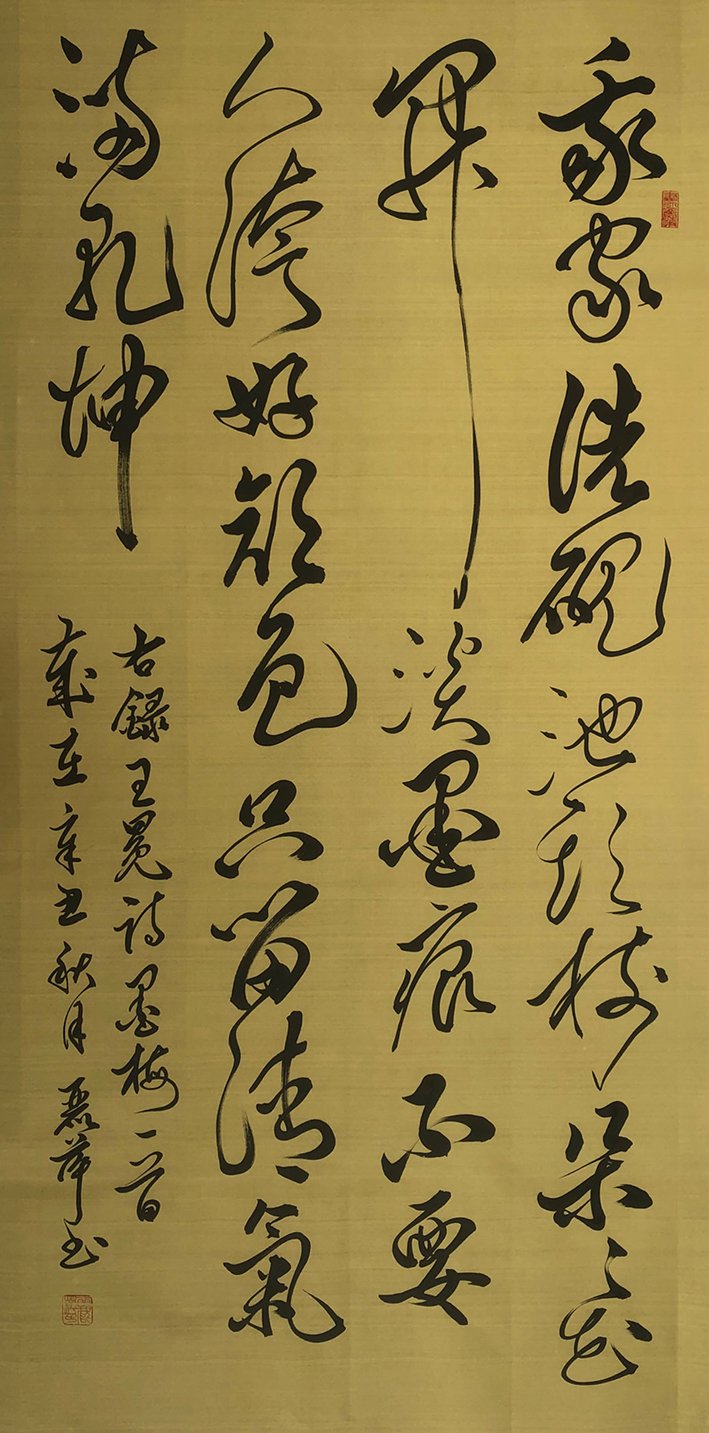 我家洗硯池頭樹朵々花
開淡墨痕不要
人誇好顏色只留清氣
滿乾坤
右錄王冕詩墨梅一首
歲在辛丑秋月麗萍书